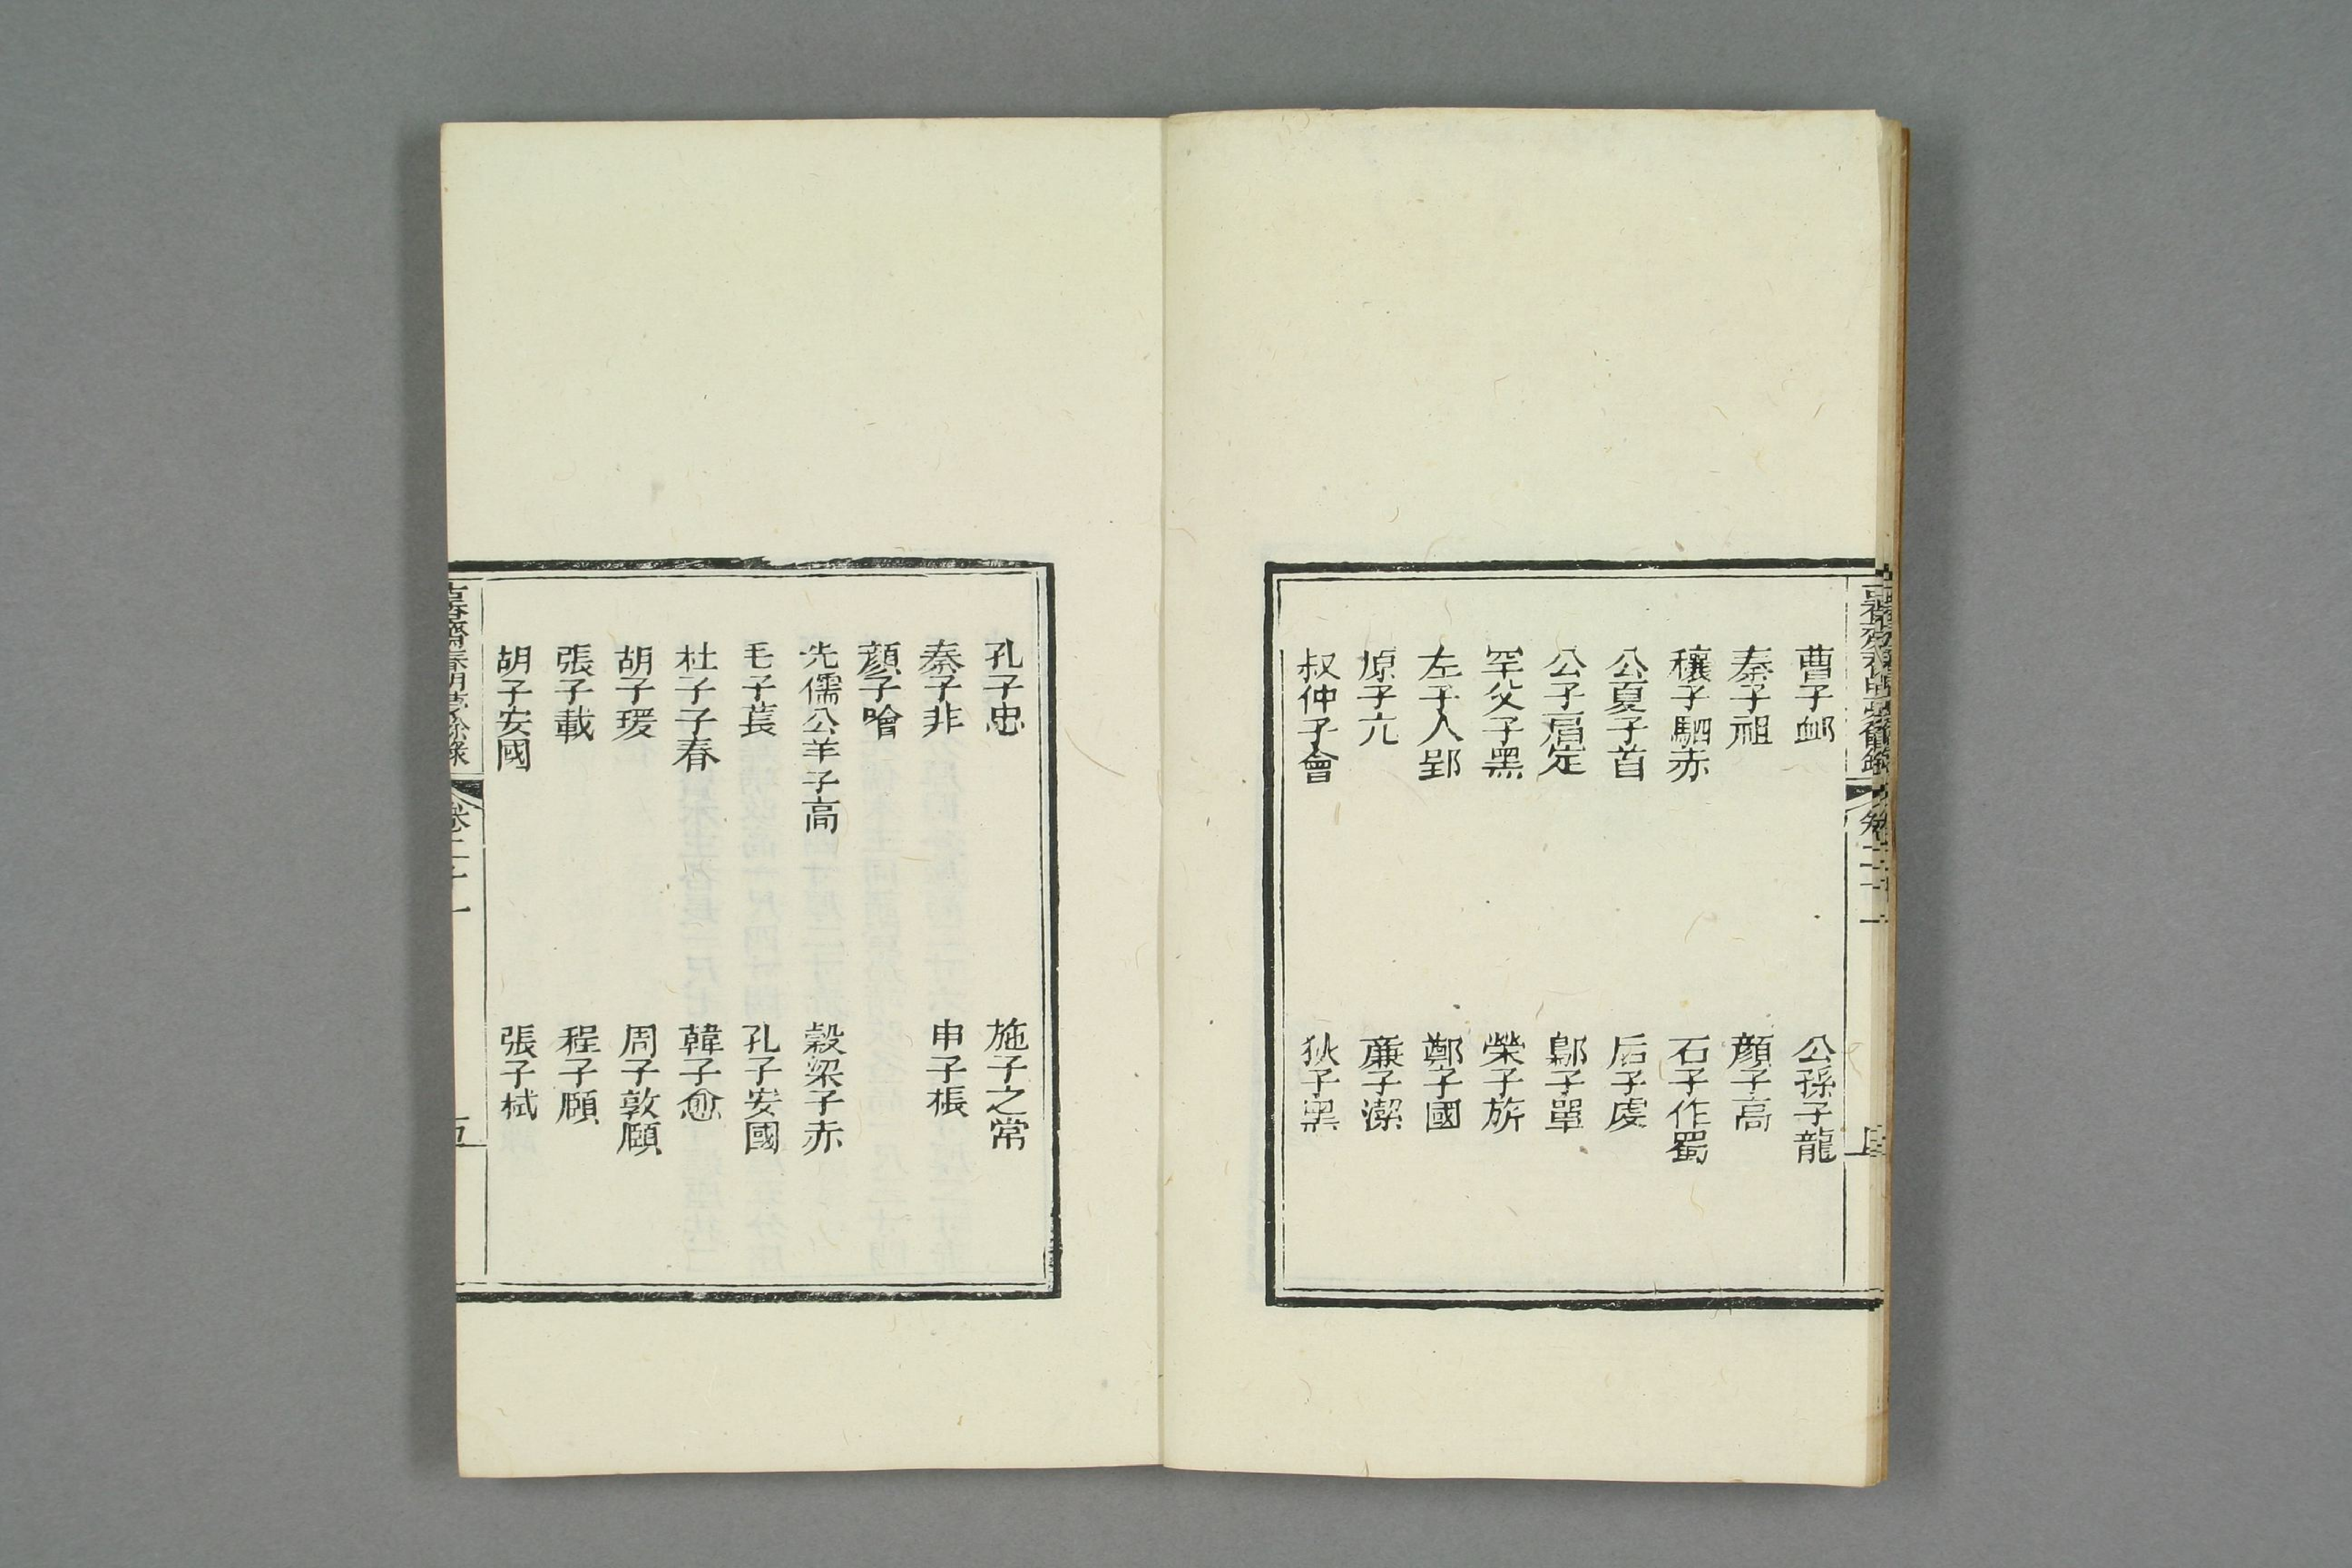 曹子䘏 公孫子龍
秦子祖 顏子高
穰子駟赤 石子作蜀
公夏子首 后子處
公子肩定 鄡子單
罕父子黑 榮子旂
左子人郢 鄭子國
原子亢 廉子潔
叔仲子會 狄子黑
孔子忠 施子之常
秦子非 申子棖
顏子噲
先儒公羊子高 穀梁子赤
毛子萇 孔子安國
杜子子春 韓子愈
胡子瑗 周子敦頤
張子載 程子頤
胡子安國 張子栻
古香齋春明夢餘錄 卷二十一 五